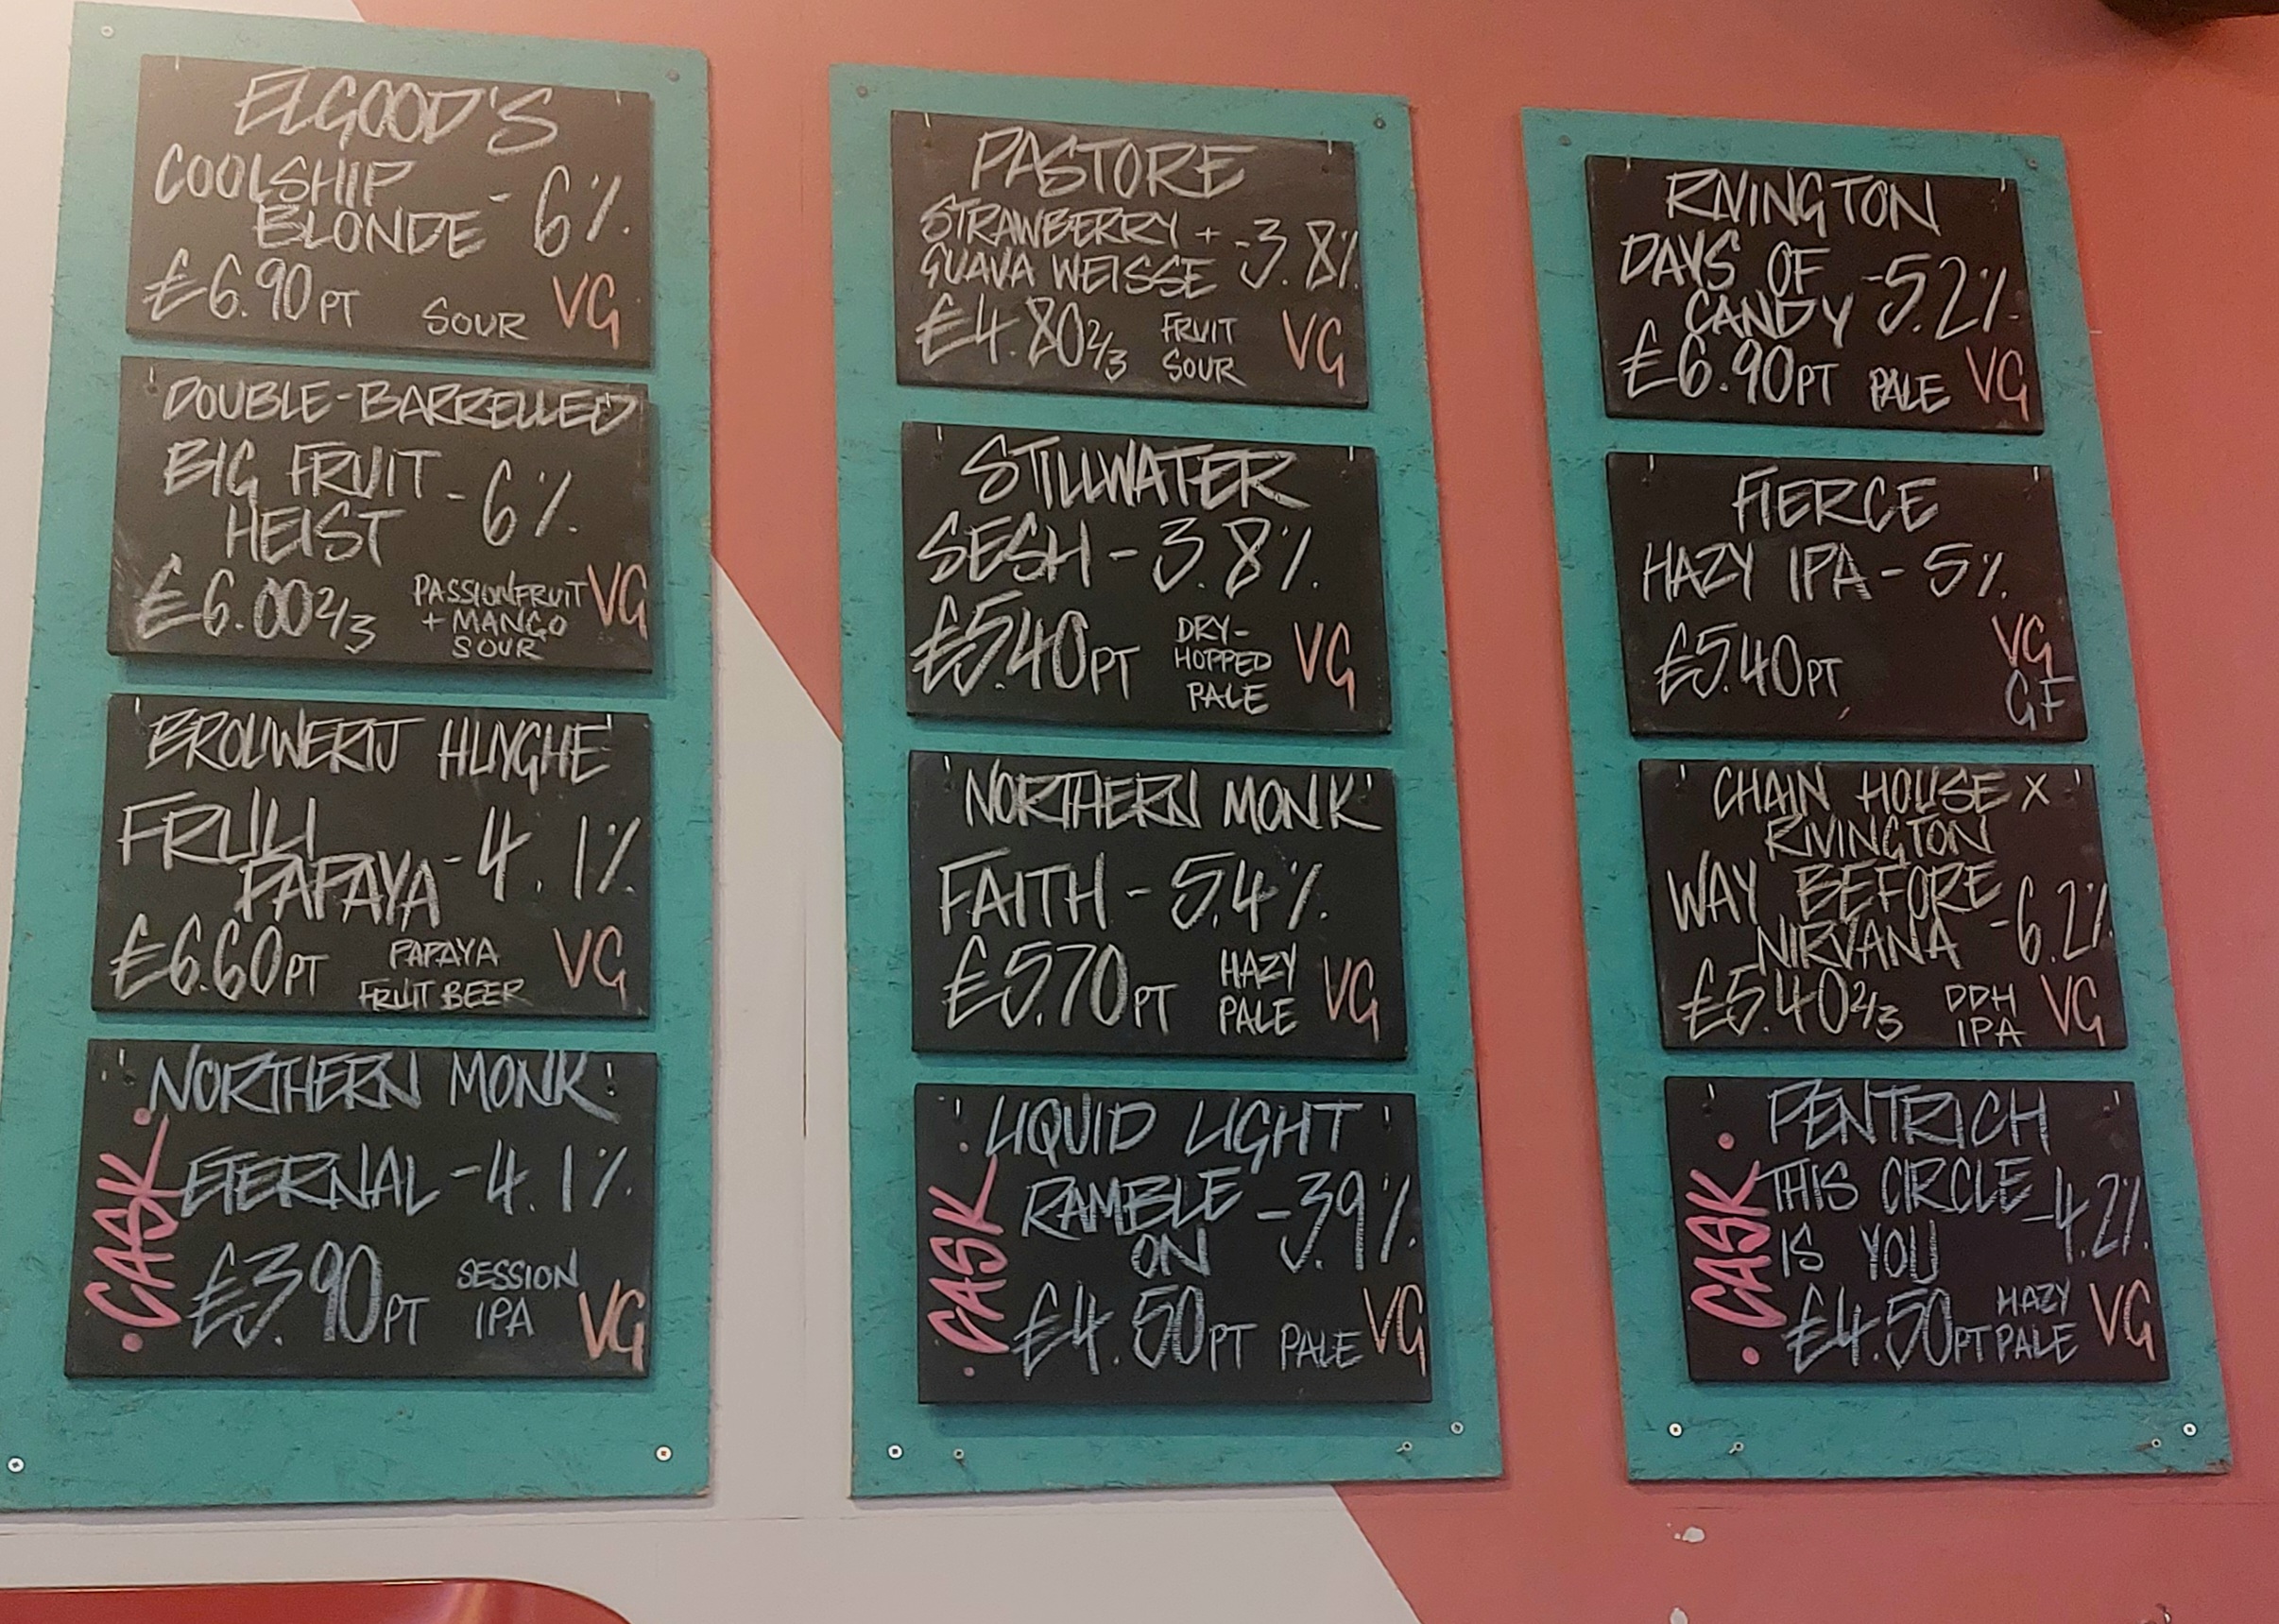 ELGOOD'S
COOLSHIP
BLONDE - 6%
£6.90PT SOUR VG
DOUBLE-BARRELLED
BIG FRUIT
HEIST - 6%
£6.00 2/3 PASSIONFRUIT
+ MANGO
SOUR VG
BROUWERIJ HUYGHE
FRULI
PAPAYA - 4.1%
£6.60PT PAPAYA
FRUIT BEER VG
NORTHERN MONK
ETERNAL - 4.1%
£3.90PT SESSION
IPA VG
·CASK·
PASTORE
STRAWBERRY +
GUAVA WEISSE - 3.8%
£4.80 2/3 FRUIT
SOUR VG
STILLWATER
SESH - 3.8%
£5.40PT DRY-
HOPPED
PALE VG
NORTHERN MONK
FAITH - 5.4%
£5.70PT HAZY
PALE VG
LIQUID LIGHT
RAMBLE
ON - 3.9%
£4.50PT PALE VG
·CASK·
RIVINGTON
DAYS OF
CANDY - 5.2%
£6.90PT PALE VG
FIERCE
HAZY IPA - 5%
£5.40PT VG
GF
CHAIN HOUSE X
RIVINGTON
WAY BEFORE
NIRVANA - 6.2%
£5.40 2/3 DDH
IPA VG
PENTRICH
THIS CIRCLE
IS YOU - 4.2%
£4.50PT HAZY
PALE VG
·CASK·